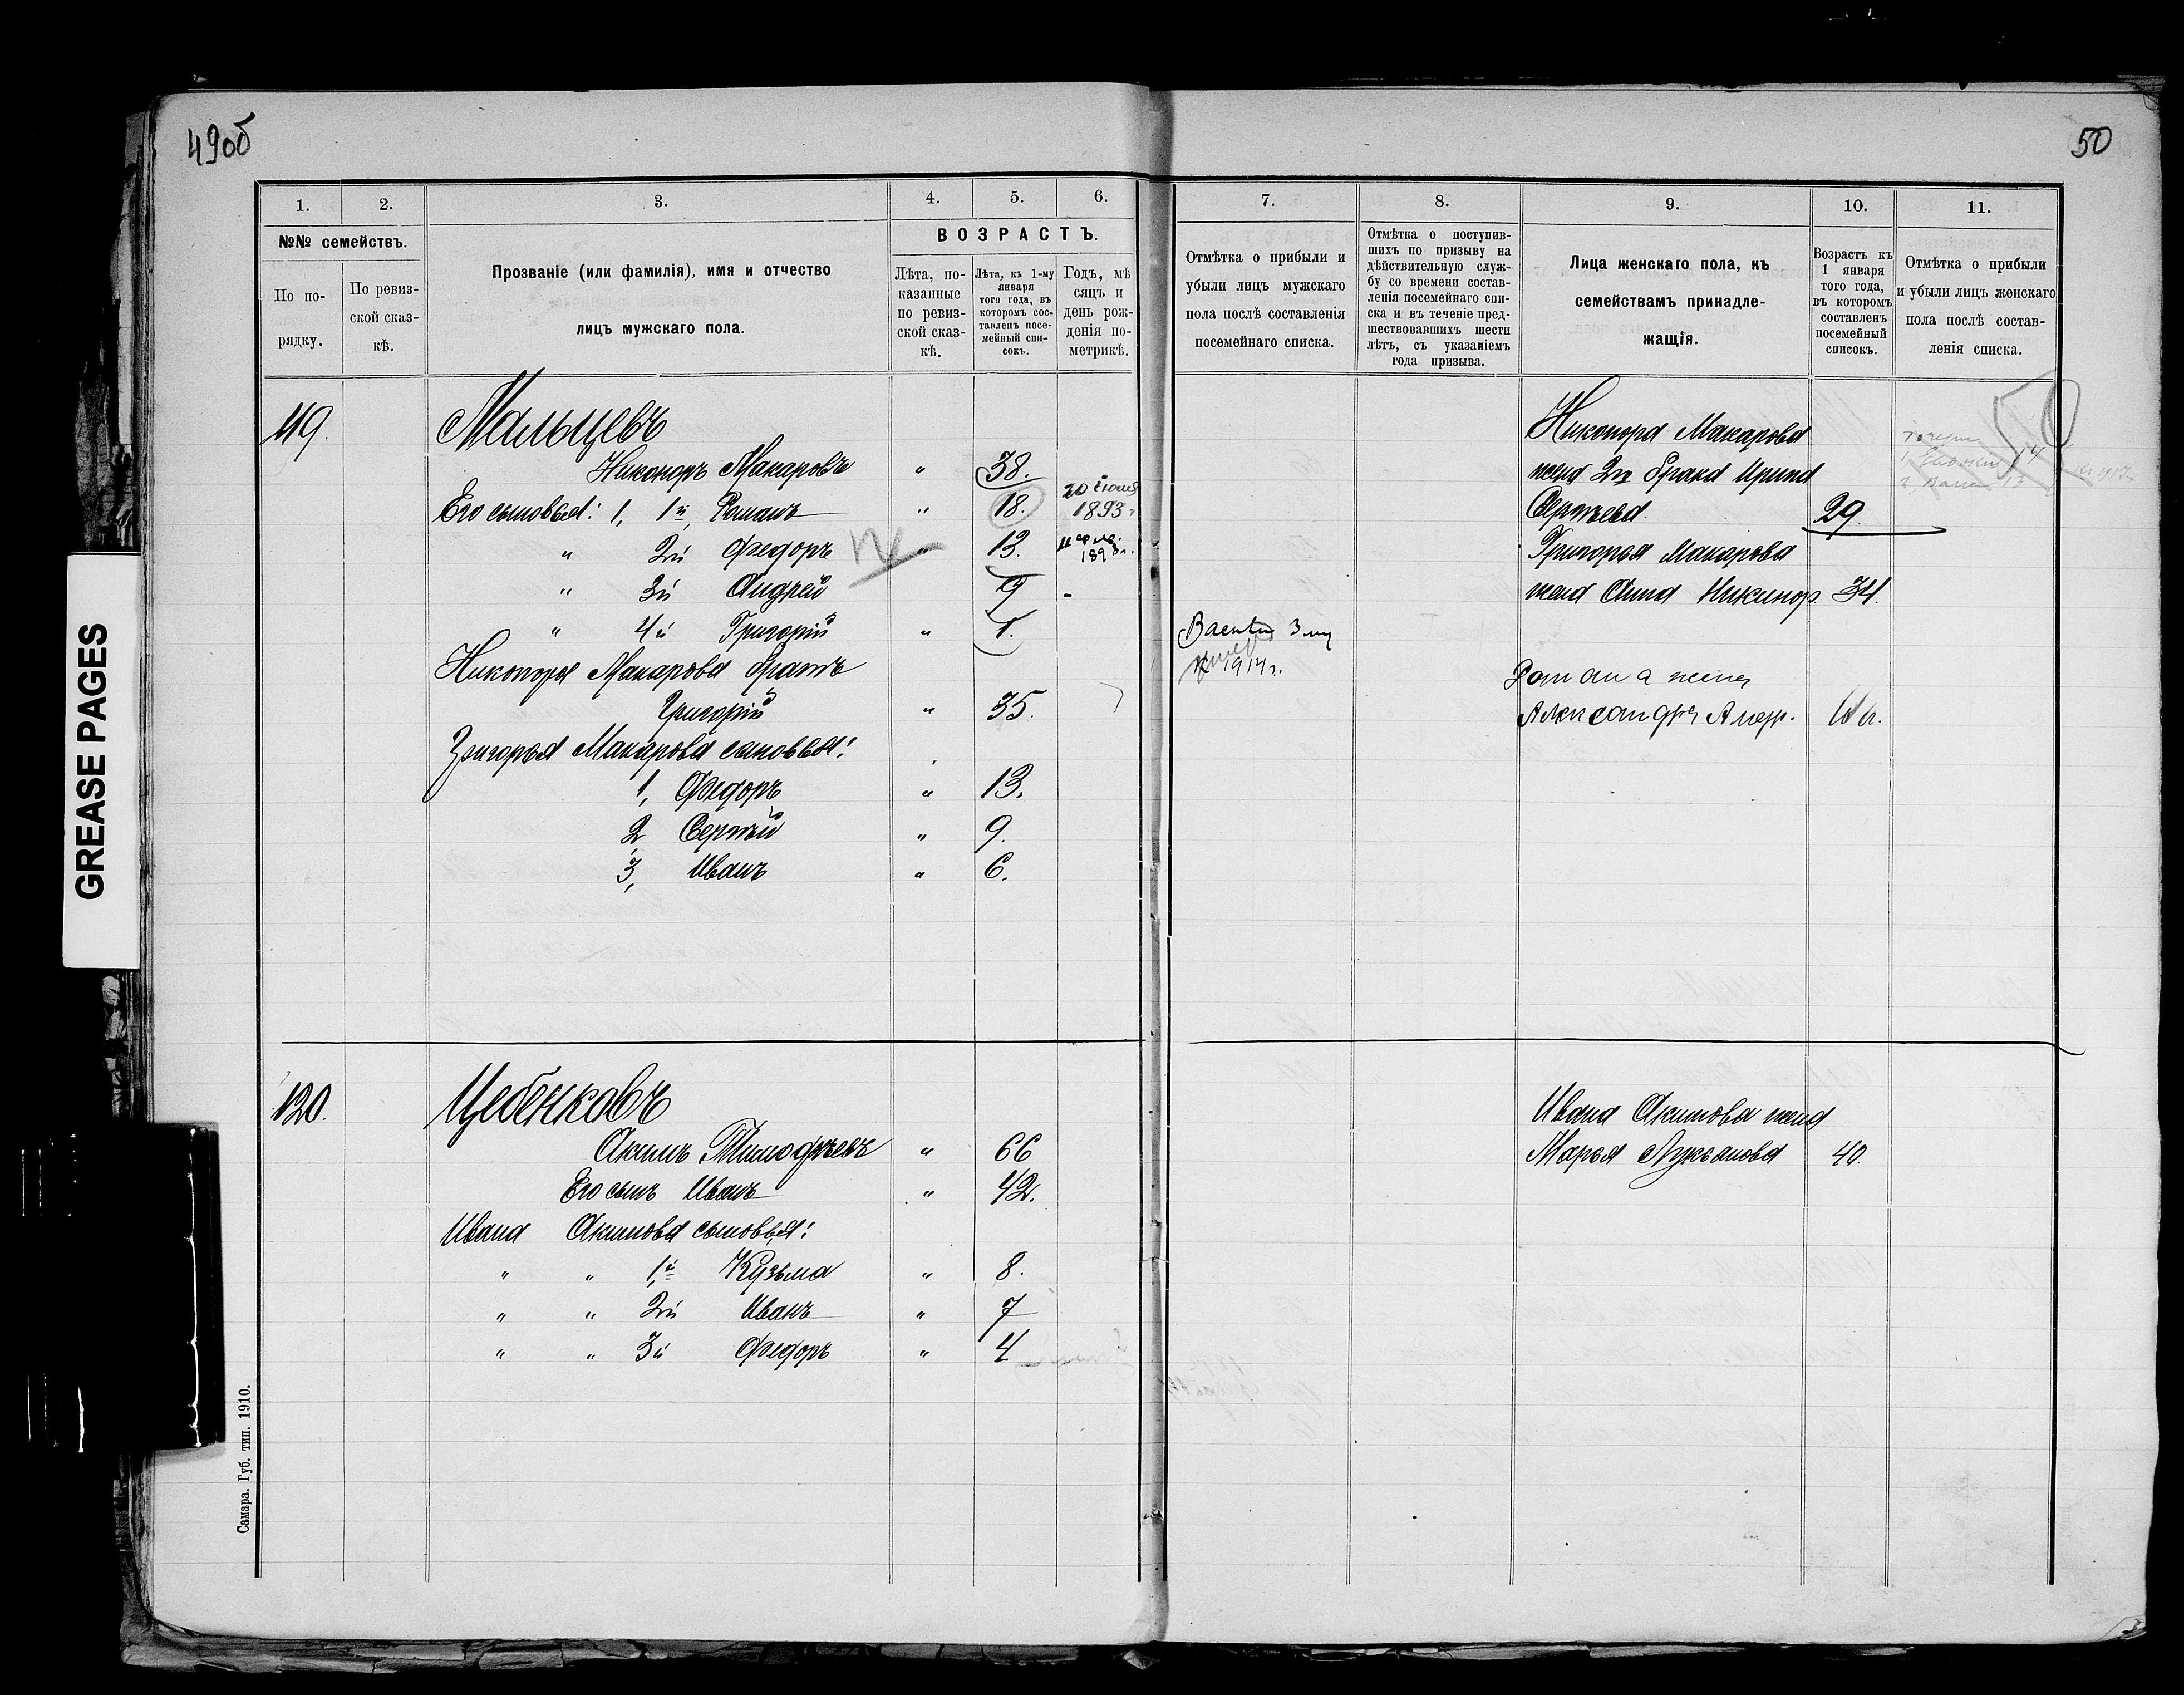 49об
50
GREASE PAGES
1. 2. 3. 4. 5. 6. 7. 8. 9. 10. 11.
№№ семействъ.
По порядку.
По ревизской сказкѣ.
Прозваніе (или фамилія), имя и отчество
лицъ мужскаго пола.
ВОЗРАСТЪ.
Лѣта, показанные по ревизской сказкѣ.
Лѣта, къ 1-му января того года, въ которомъ составленъ посемейный списокъ.
Годъ, мѣсяцъ и день рожденія по метрикѣ.
Отмѣтка о прибыли и
убыли лицъ мужскаго
пола послѣ составленія
посемейнаго списка.
Отмѣтка о поступив-
шихъ по призыву на
дѣйствительную служ-
бу со времени состав-
ленія посемейнаго спи-
ска и въ теченіе пред-
шествовавшихъ шести
лѣтъ, съ указаніемъ
года призыва.
Лица женскаго пола, къ
семействамъ принадле-
жащія.
Возрастъ къ
1 января
того года,
въ которомъ
составленъ
посемейный
списокъ.
Отмѣтка о прибыли
и убыли лицъ женскаго
пола послѣ состав-
ленія списка.
119. Мальцевъ
Никоноръ Макаровъ " 38.
Его сыновья: 1, 1й, Романъ " 18. 20 іюля 1893 г
" 2й Федоръ " 13.
" 3й Андрей 9 -
" 4й Григорій " 1.
Никонора Макарова братъ
Григорій " 35.
Григорья Макарова сыновья:
1, Федоръ " 13.
2, Сергѣй " 9.
3, Иванъ " 6.
1914 г.
Никонора Макарова
жена 2го брака Ирина
Сергѣева. 29
Григорья Макарова
жена Анна Никинор. 34.
Романа жена
Александра Андр.
120. Цебенковъ
Акимъ Тимофѣевъ " 66
Его сынъ Иванъ " 42.
Ивана Акимова сыновья:
" " 1й Кузьма " 8.
" " 2й Иванъ " 7
" " 3й Федоръ " 4
Ивана Акимова жена
Марья Лукьянова 40.
Самара. Губ. тип. 1910.